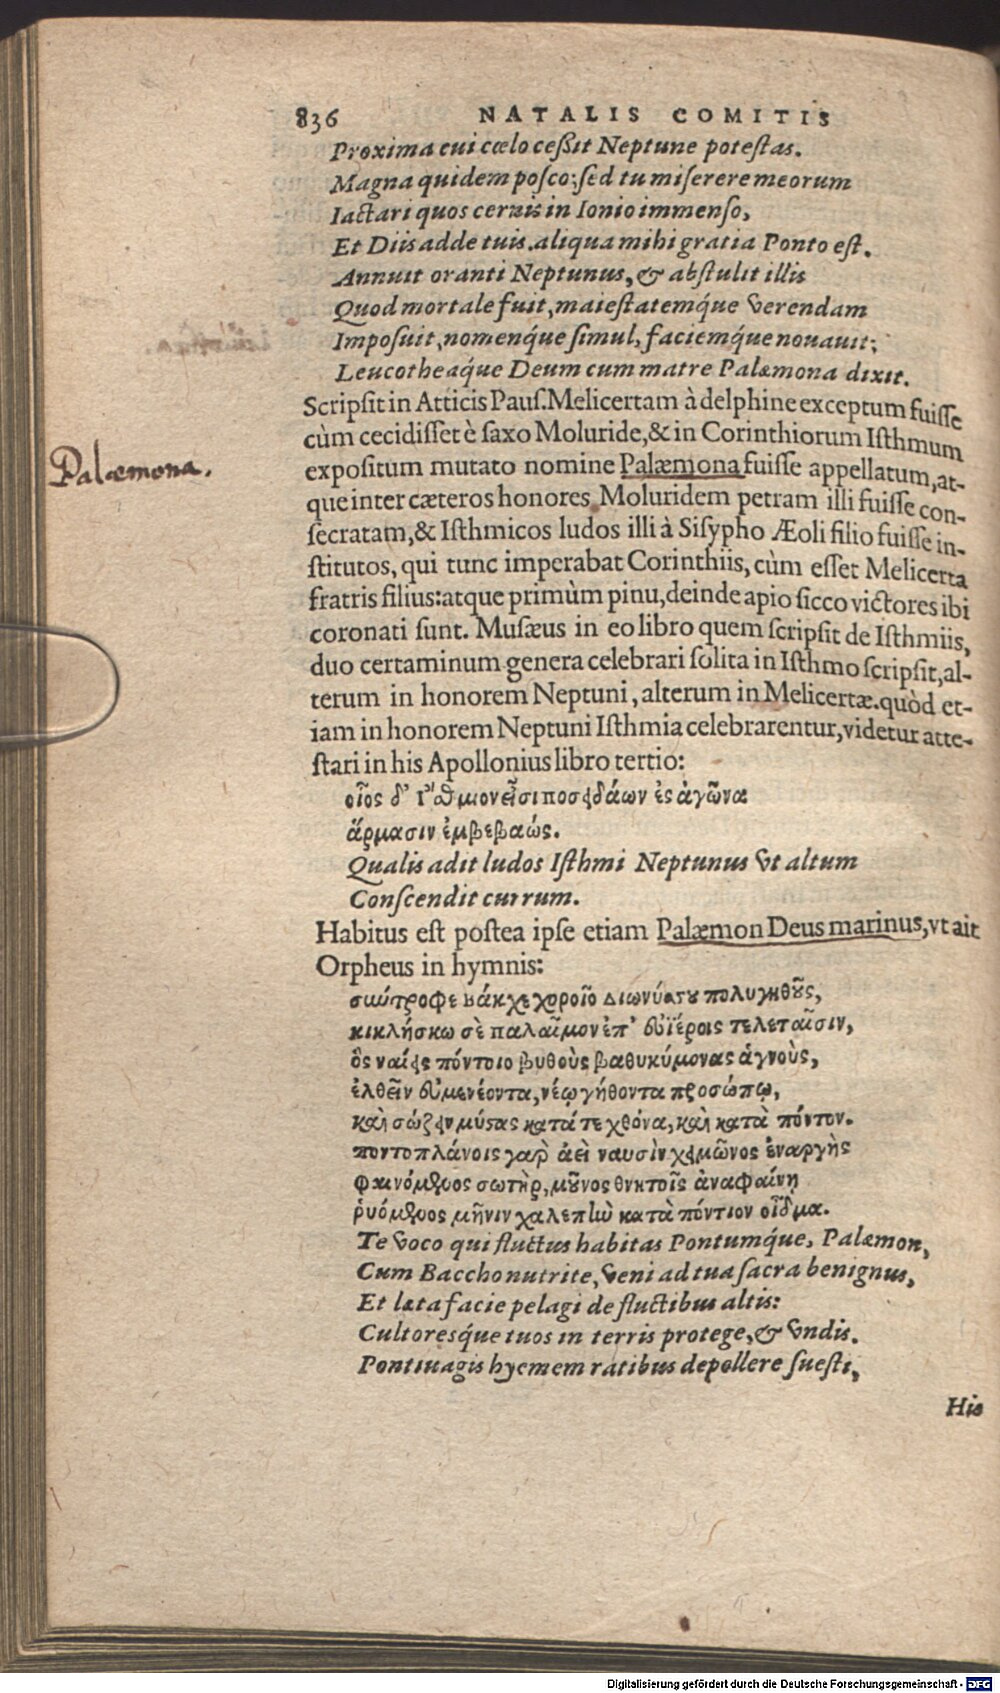 836 NATALIS COMITIS
Proxima cui cœlo ceßit Neptune potestas.
Magna quidem posco: sed tu miserere meorum
Iactari quos cernis in Ionio immenso,
Et Diis adde tuis. aliqua mihi gratia Ponto est.
Annuit oranti Neptunus, & abstulit illis
Quod mortale fuit, maiestatemq́ue verendam
Imposuit, nomenq́ue simul, faciemq́ue nouauit:
Leucotheaq́ue Deum cum matre Palæmona dixit.
Scripsit in Atticis Paus. Melicertam à delphine exceptum fuisse
cùm cecidisset è saxo Moluride, & in Corinthiorum Isthmum
expositum mutato nomine Palæmona fuisse appellatum, at-
que inter cæteros honores Moluridem petram illi fuisse con-
secratam, & Isthmicos ludos illi à Sisypho Æoli filio fuisse in-
stitutos, qui tunc imperabat Corinthiis, cùm esset Melicerta
fratris filius: atque primùm pinu, deinde apio sicco victores ibi
coronati sunt. Musæus in eo libro quem scripsit de Isthmiis,
duo certaminum genera celebrari solita in Isthmo scripsit, al-
terum in honorem Neptuni, alterum in Melicertæ. quòd et-
iam in honorem Neptuni Isthmia celebrarentur, videtur atte-
stari in his Apollonius libro tertio:
οἷος δ' Ἴσθμιον εἶσι ποσειδάων ἐς ἀγῶνα
ἅρμασιν ἐμβεβαώς.
Qualis adit ludos Isthmi Neptunus vt altum
Conscendit currum.
Habitus est postea ipse etiam Palæmon Deus marinus, vt ait
Orpheus in hymnis:
σύντροφε βάκχε χοροῖο διωνύσου πολυγηθοῦς,
κικλήσκω σὲ παλαῖμον ἐπ' εὐϊέροις τελεταῖσιν,
ὃς ναίεις πόντοιο βυθοὺς βαθυκύμονας ἁγνοὺς,
ἐλθεῖν εὐμενέοντα, νέῳ γήθοντα προσώπῳ,
καὶ σώζειν μύστας κατά τε χθόνα, καὶ κατὰ πόντον.
ποντοπλάνοις γὰρ ἀεὶ ναυσὶν χειμῶνος ἐναργὴς
φαινόμενος σωτὴρ, μοῦνος θνητοῖς ἀναφαίνῃ
ῥυόμενος μῆνιν χαλεπὴν κατὰ πόντιον οἶδμα.
Te voco qui fluctus habitas Pontumq́ue, Palæmon,
Cum Baccho nutrite, veni ad tua sacra benignus,
Et læta facie pelagi de fluctibus altis:
Cultoresq́ue tuos in terris protege, & vndis.
Pontiuagis hyemem ratibus depellere suesti,
His
Palæmona.
Digitalisierung gefördert durch die Deutsche Forschungsgemeinschaft - DFG